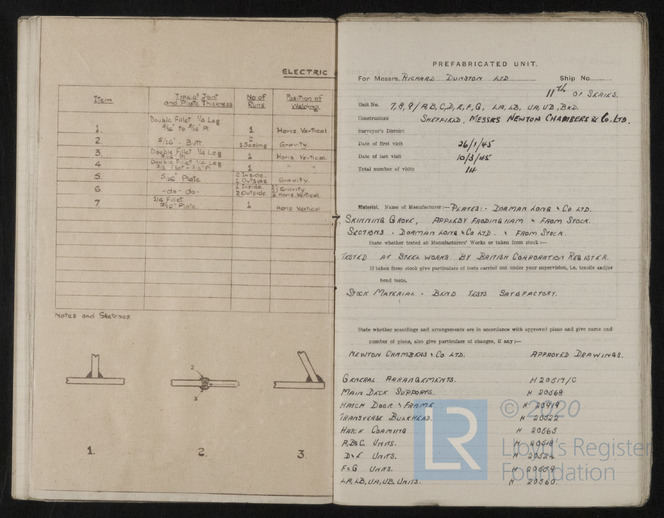 ELECTRIC
Item
Type of Joint and Plate Thickness
No of Runs
Position of Welding
1.
Double Fillet 1/4 Leg
5/16" to 5/16" Pl
1
Horiz. Vertical
2.
5/16" - Butt
1 Sealing
Gravity
3.
Double Fillet 1/4 Leg
1
Horiz Vertical
4
Double Fillet 1/4 Leg
1
5.
5/16" Plate
2 Inside.
1 Outside
Gravity
6
-do- do-
2 Inside.
2 Outside
Gravity
Horiz Vertical
7
1/4 Fillet
Plate
1
Horiz Vertical
Notes and Sketches
2
3
1.
2.
3.
PREFABRICATED UNIT.
For Messrs. RICHARD DUNSTON LTD Ship No.
11th OF SERIES.
Unit No. 7, 8, 9/A, B, C, D, E, F, G, LA, LB, UA, UB, BKD.
Constructors SHEFFIELD, MESSRS NEWTON CHAMBERS & CO. LTD.
Surveyor's District
Date of first visit 26/1/45
Date of last visit 10/3/45
Total number of visits 14
Material. Name of Manufacturer :- PLATES:- DORMAN LONG & CO LTD.
SKINNING GROVE, APPLEBY FRODINGHAM & FROM STOCK.
SECTIONS - DORMAN LONG & CO LTD. & FROM STOCK.
State whether tested at Manufacturers' Works or taken from stock :-
TESTED AT STEEL WORKS BY BRITISH CORPORATION REGISTER.
If taken from stock give particulars of tests carried out under your supervision, i.e. tensile and/or
bend tests.
STOCK MATERIAL - BEND TESTS SATISFACTORY.
State whether scantlings and arrangements are in accordance with approved plans and give name and
number of plans, also give particulars of changes, if any :-
NEWTON CHAMBERS & CO. LTD. APPROVED DRAWINGS.
GENERAL ARRANGEMENTS. H 20517/C
MAIN DECK SUPPORTS. H 20568
HATCH DOOR & FRAME H 20919
TRANSVERSE BULKHEAD. H 20522
HATCH COAMING H 20565
A, B & C UNITS. H 20518
D & E UNITS. H 20524
F & G UNITS. H 20559
LA, LB, UA, UB. UNITS. H 20560.
LR
© 2020
Lloyd's Register
Foundation